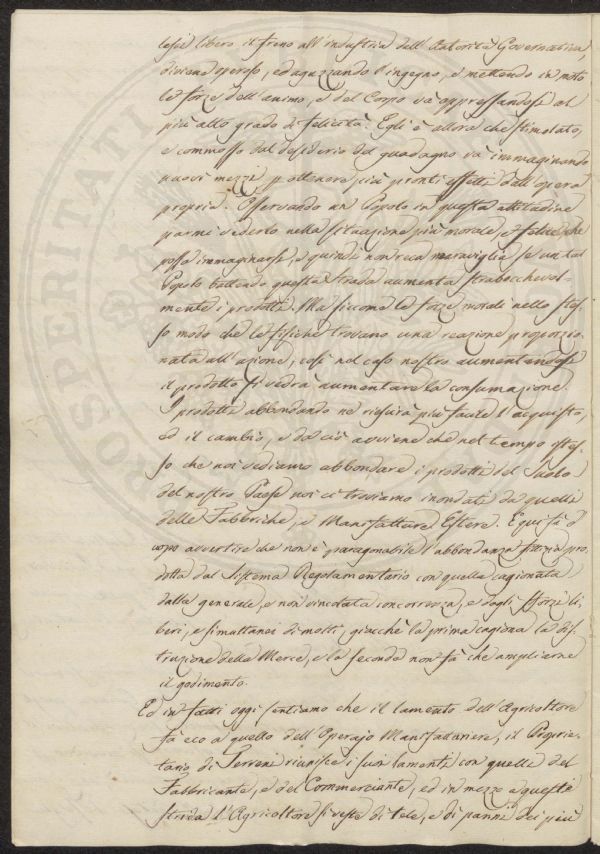 lesse libero il freno all'industria dell'Autorità Governativa,
diviene operoso, ed aguzzando l'ingegno, e mettendo in moto
le forze dell'animo, e del Corpo va appressandosi al
più alto grado di felicità. Egli è allora che stimolato,
e commosso dal desiderio del guadagno va immaginando
nuovi mezzi p ottenere più pronti effetti dall'opera
propria. Osservando un Popolo in questa attitudine
parmi vederlo nella situazione più morale, e felice che
possa immaginarsi, e quindi non reca maraviglia se un tal
Popolo battendo questa strada aumenta straboccheval-
mente i prodotti. Ma siccome le forze morali nello stes-
so modo che le fisiche trovano una reazione proporzio-
nata all'azione, così nel caso nostro aumentandosi
il prodotto si vedrà aumentare la consumazione.
I prodotti abbondando ne riesce più facile l'acquisto,
ed il cambio, e da ciò avviene che nel tempo stes-
so che noi vediamo abbondare i prodotti del Suolo
del nostro Paese noi ci troviamo inondati da quelli
delle Fabbriche, e Manifatture Estere. E qui fà d'
uopo avvertire che non è paragonabile l'abbondanza fittizia pro-
dotta dal Sistema Regolamentario con quella cagionata
dalla generale, e non vincolata concorrenza, e dagli sforzi li-
beri, e simultanei di molti, giacchè la prima cagiona la dis-
truzione della Merce, e la seconda non fà che ampliarne
il godimento.
Ed in fatti oggi sentiamo che il lamento dell'Agricoltore
fà eco a quello dell'Operajo Manifatturiere, il Proprie-
tario di Terreni riunisce i suoi lamenti con quelli del
Fabbricante, e del Commerciante, ed in mezzo a queste
strida l'Agricoltore si veste di tele, e di panni dei più
PROSPERITATI